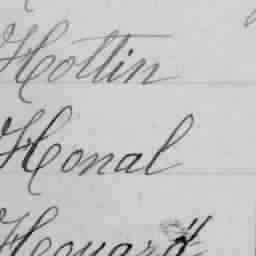 Hottin
Honal
Houard